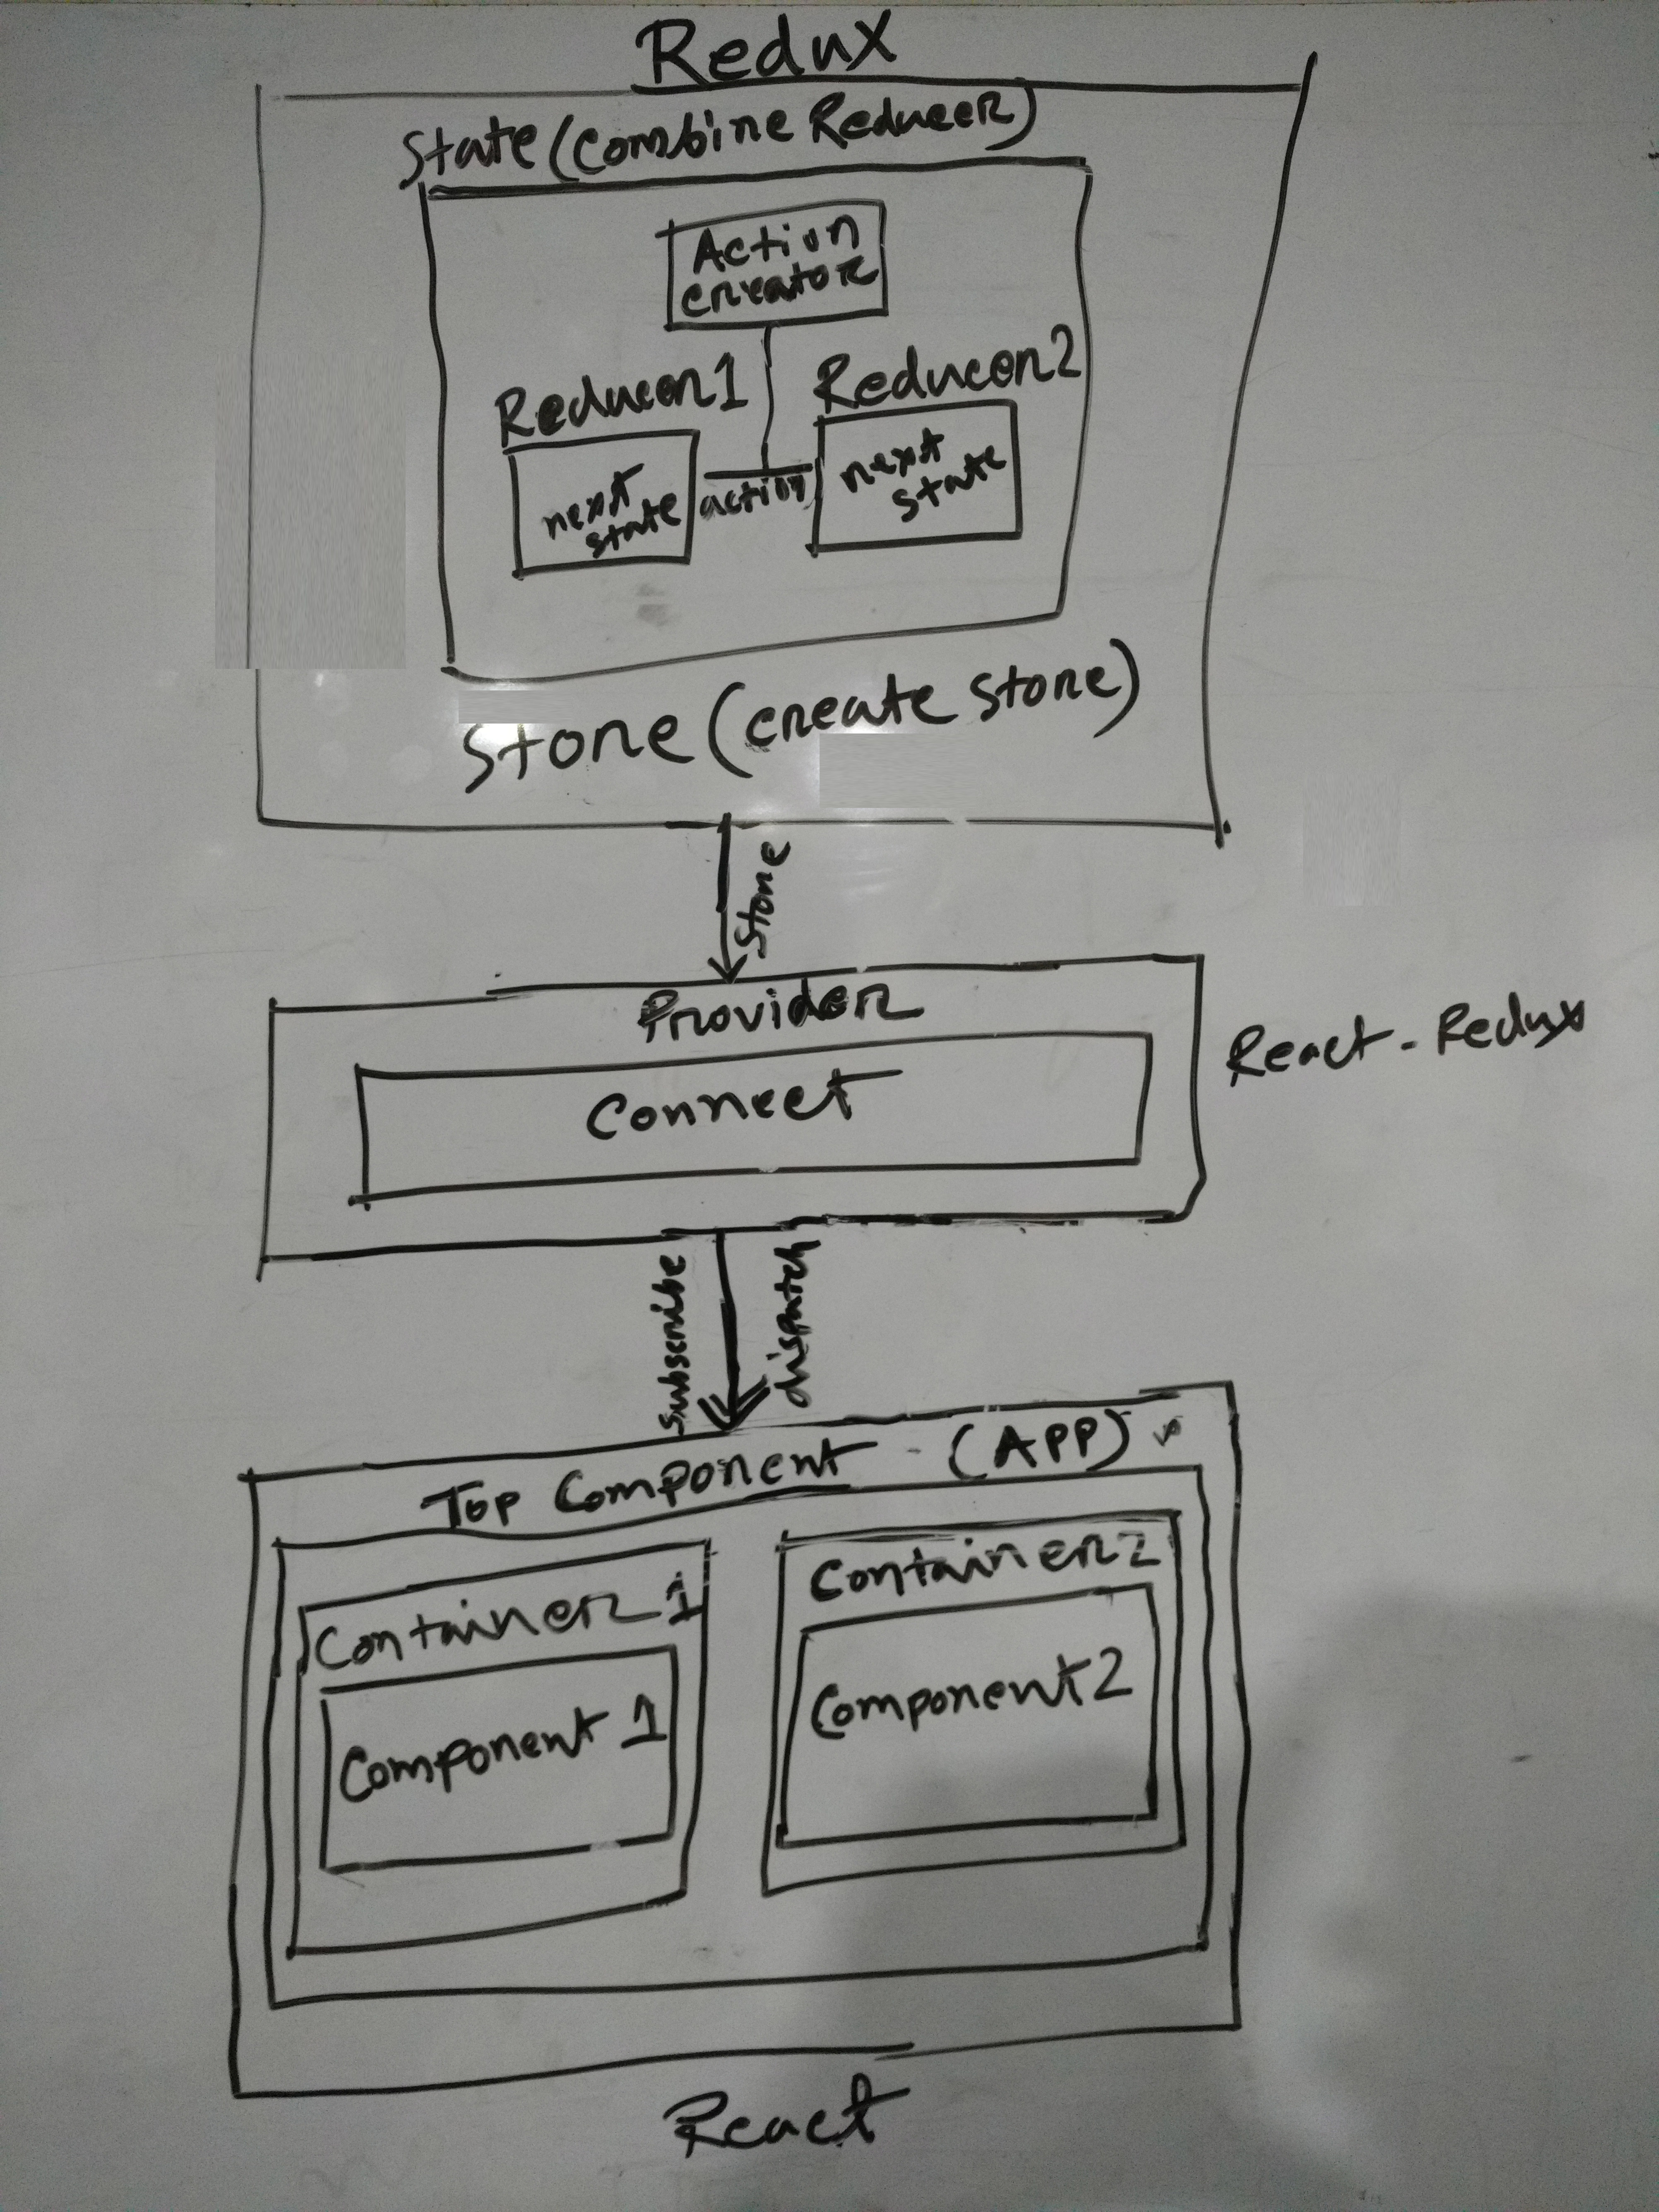 Redux
State (Combine Reducer)
Action
creator
Reducer1
Reducer2
next
state
action
next
state
Store (create store)
Store
Provider
Connect
React-Redux
subscribe
dispatch
Top Component - (APP)
Container 1
Container 2
Component 1
Component 2
React